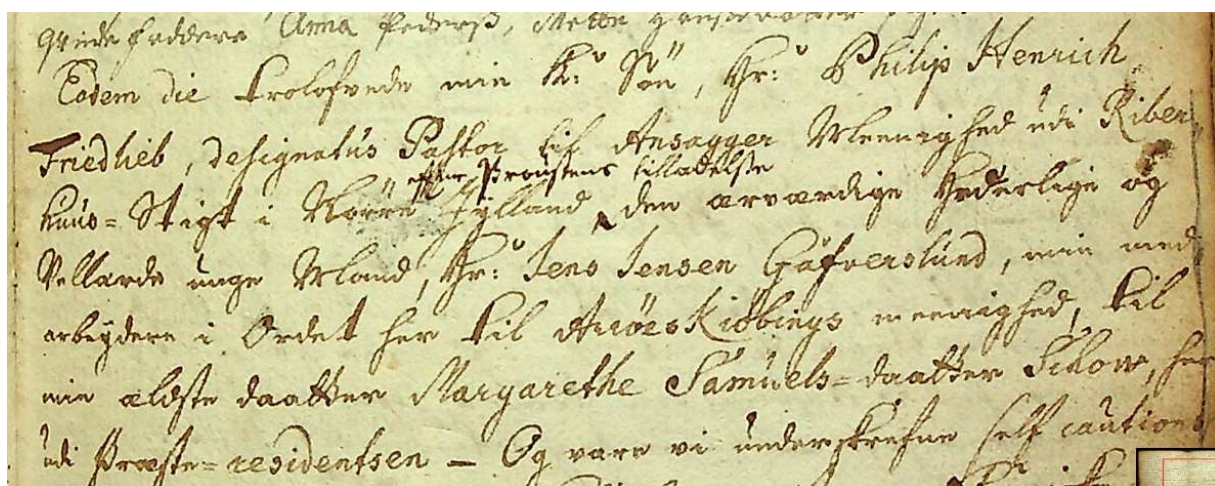 qvinde faddere Anna Peders, Mette Hansdaatter
Eodem die trolofvede min K: Sön, Hr: Philip Henrich
Friedlieb, designatus Pastor til Ansagger Meenighed udi Riber-
huus=Stigt i Nörre Jylland, efter Proustens tilladelse den ærværdige Hederlige og
Vellærde unge Mand, Hr: Jens Jensen Gafverslund, min med
arbeÿdere i Ordet her til Ærröes Kiöbings meenighed, til
min ældste daatter Margarethe Samuels=daatter Schow, her
udi Præste=residentsen — Og vare vi underskrefne self cautions